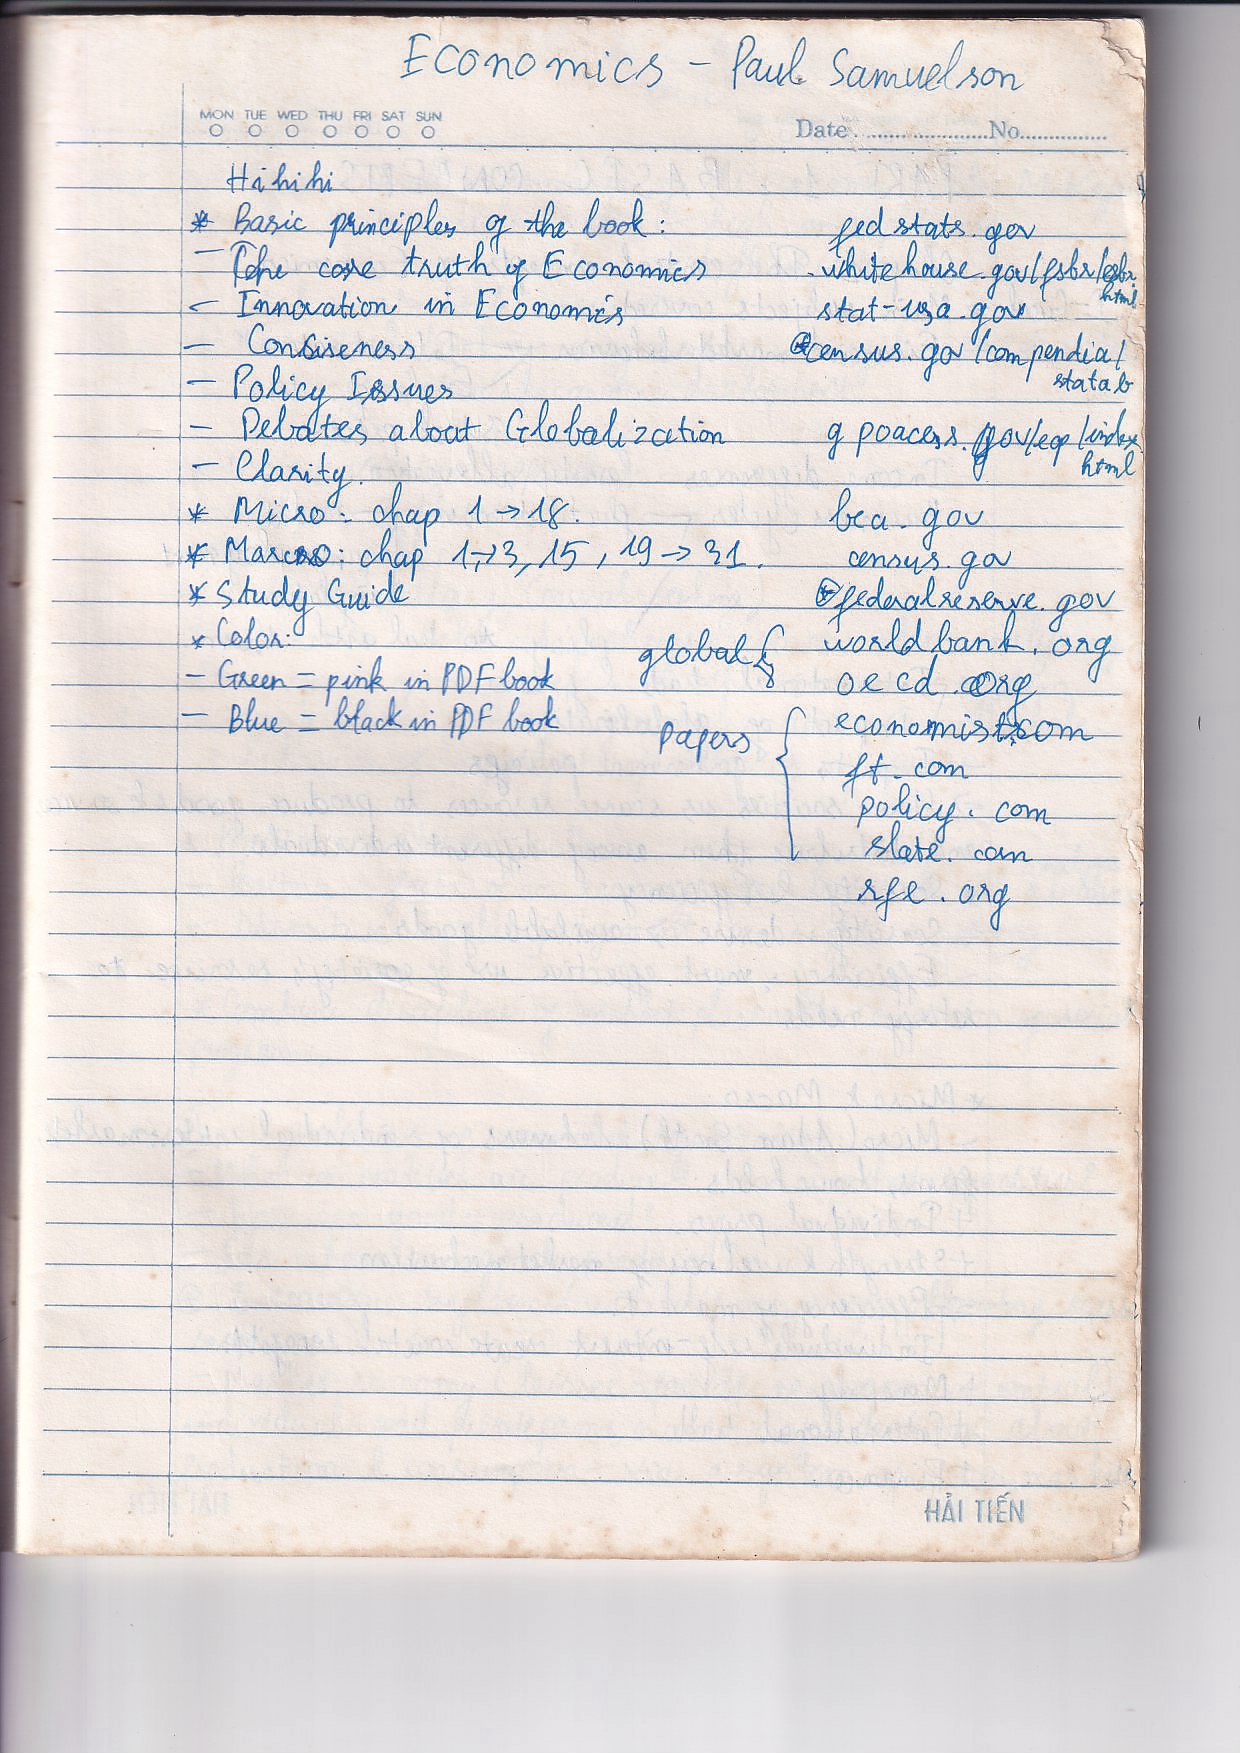 Economics - Paul Samuelson
MON TUE WED THU FRI SAT SUN
Date.....................No...............
Hihihi
* Basic principles of the book:
- The core truth of Economics
- Innovation in Economics
- Consiseness
- Policy Issues
- Debates about Globalization
- Clarity.
* Micro: chap 1→18.
* Macro: chap 1→3, 15, 19→31.
* Study Guide
* Color:
- Green = pink in PDF book
- Blue = black in PDF book
fedstats.gov
.whitehouse.gov/fsbr/esbr.
html
stat-usa.gov
census.gov/compendia/
statab
gpoaccess.gov/eop/index.
html
bea.gov
census.gov
federalreserve.gov
global {
worldbank.org
oecd.org
Papers {
economist.com
ft.com
policy.com
slate.com
rfe.org
HẢI TIẾN